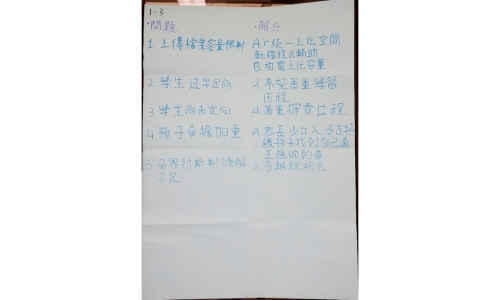 1-3
·問題
·解方
1.上傳檔案容量限制
A.r統一上傳空間
軟檔程式輔助
B.放寬上傳容量
2.學生过早定向
3.希望著重學習
历程
3.學生尚未定向
4.著重探索过程
4.孩子負擔加重
A.家長少介入,多支持
讓孩子找到自己真
正想做的事
5.各界對新制瞭解
不足
多辦說明会